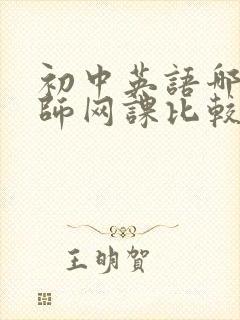 初中英語哪
師网課比較
王明賀